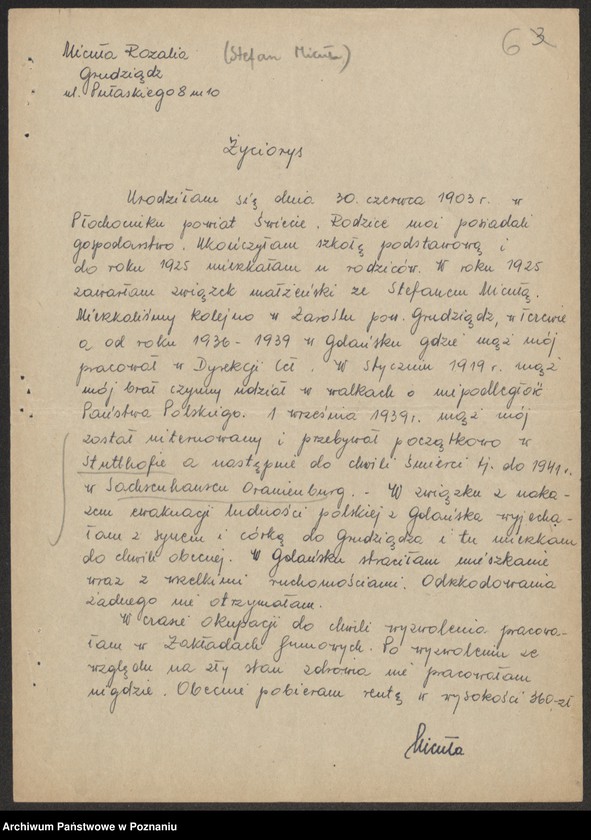 Micuła Rozalia (Stefan Micuła) 6 3
Grudziądz
ul. Pułaskiego 8 m 10
Życiorys
Urodziłam się dnia 30. czerwca 1903 r. w
Płochocinku powiat Świecie. Rodzice moi posiadali
gospodarstwo. Ukończyłam szkołę podstawową i
do roku 1925 mieszkałam u rodziców. W roku 1925
zawarłam związek małżeński ze Stefanem Micułą.
Mieszkaliśmy kolejno w Zarośłu pow. Grudziądz, w Tczewie
a od roku 1936 - 1939 w Gdańsku gdzie mąż mój
pracował w Dyrekcji Ceł. W styczniu 1919 r. mąż
mój brał czynny udział w walkach o niepodległość
Państwa Polskiego. 1 września 1939 r. mąż mój
został internowany i przebywał początkowo w
Stutthofie a następnie do chwili śmierci tj. do 1941 r.
w Sachsenhausen Oranienburg. - W związku z naka-
zem ewakuacji ludności polskiej z Gdańska wyjecha-
łam z synem i córką do Grudziądza i tu mieszkam
do chwili obecnej. W Gdańsku straciłam mieszkanie
wraz z wszelkimi ruchomościami. Odszkodowania
żadnego nie otrzymałam.
W czasie okupacji do chwili wyzwolenia pracowa-
łam w Zakładach Gumowych. Po wyzwoleniu ze
względu na zły stan zdrowia nie pracowałam
nigdzie. Obecnie pobieram rentę w wysokości 360,- zł
Micuła
Archiwum Państwowe w Poznaniu